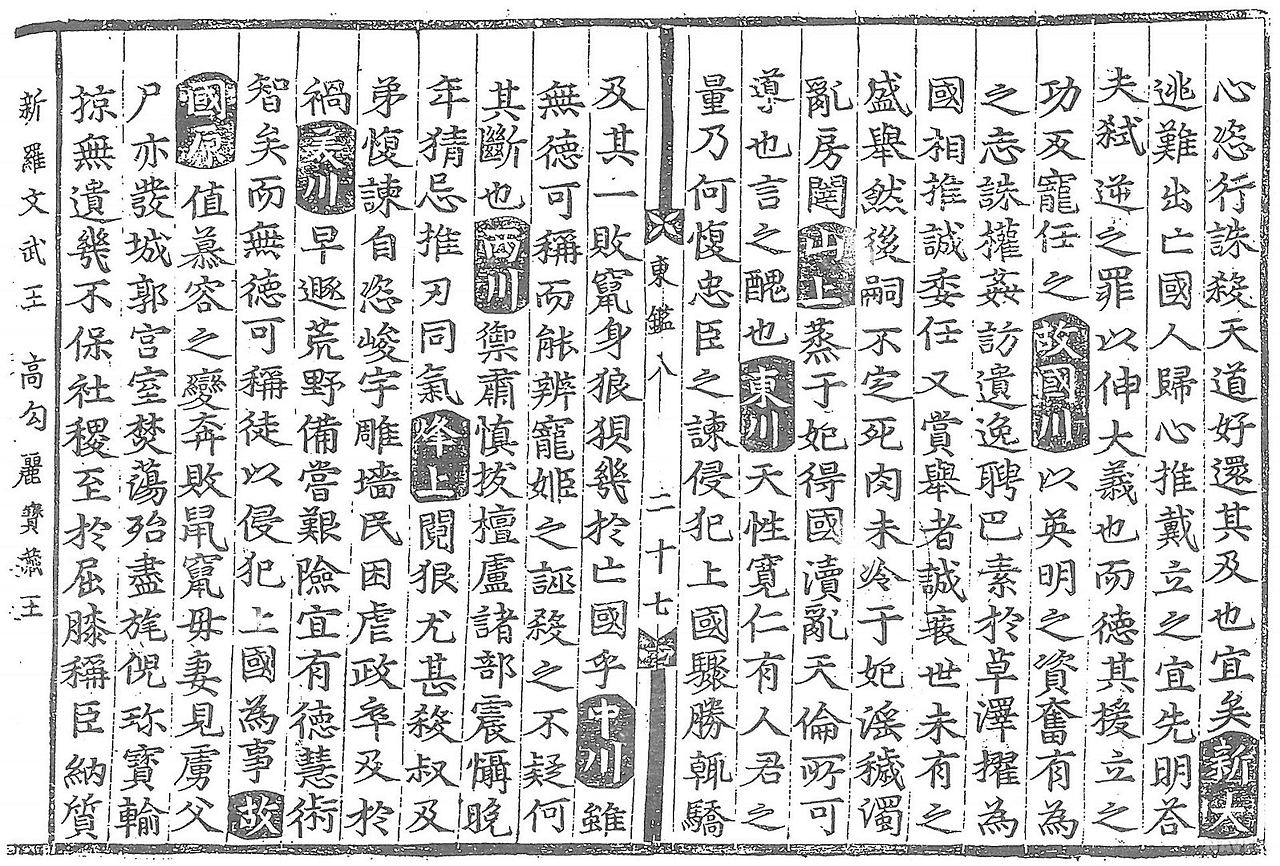 心恣行誅殺天道好還其及也宜矣新大
逃難出亡國人歸心推戴立之宜先明荅
夫弑逆之罪以伸大義也而德其援立之
功反寵任之故國川以英明之資奮有為
之志誅權姦訪遺逸聘巴素於草澤擢為
國相推誠委任又賞舉者誠衰世未有之
盛舉然後嗣不定死肉未冷于妃淫穢濁
亂房闥山上蒸于妃得國瀆亂天倫所可
導也言之醜也東川天性寬仁有人君之
量乃何愎忠臣之諫侵犯上國驟勝輒驕
東鑑八 二十七
及其一敗竄身狼狽幾於亡國乎中川雖
無德可稱而能辨寵姬之誣殺之不疑何
其斷也西川禦肅慎拔檀盧諸部震懾晚
年猜忌推刃同氣烽上鬩狠尤甚殺叔及
弟愎諫自恣峻宇雕墻民困虐政卒及於
禍美川早遯荒野備嘗艱險宜有德慧術
智矣而無德可稱徒以侵犯上國為事故
國原值慕容之變奔敗鼠竄毋妻見虜父
尸亦發城郭宮室焚蕩殆盡旄倪珍寶輸
掠無遺幾不保社稷至於屈膝稱臣納質
新羅文武王 高勾麗寶藏王